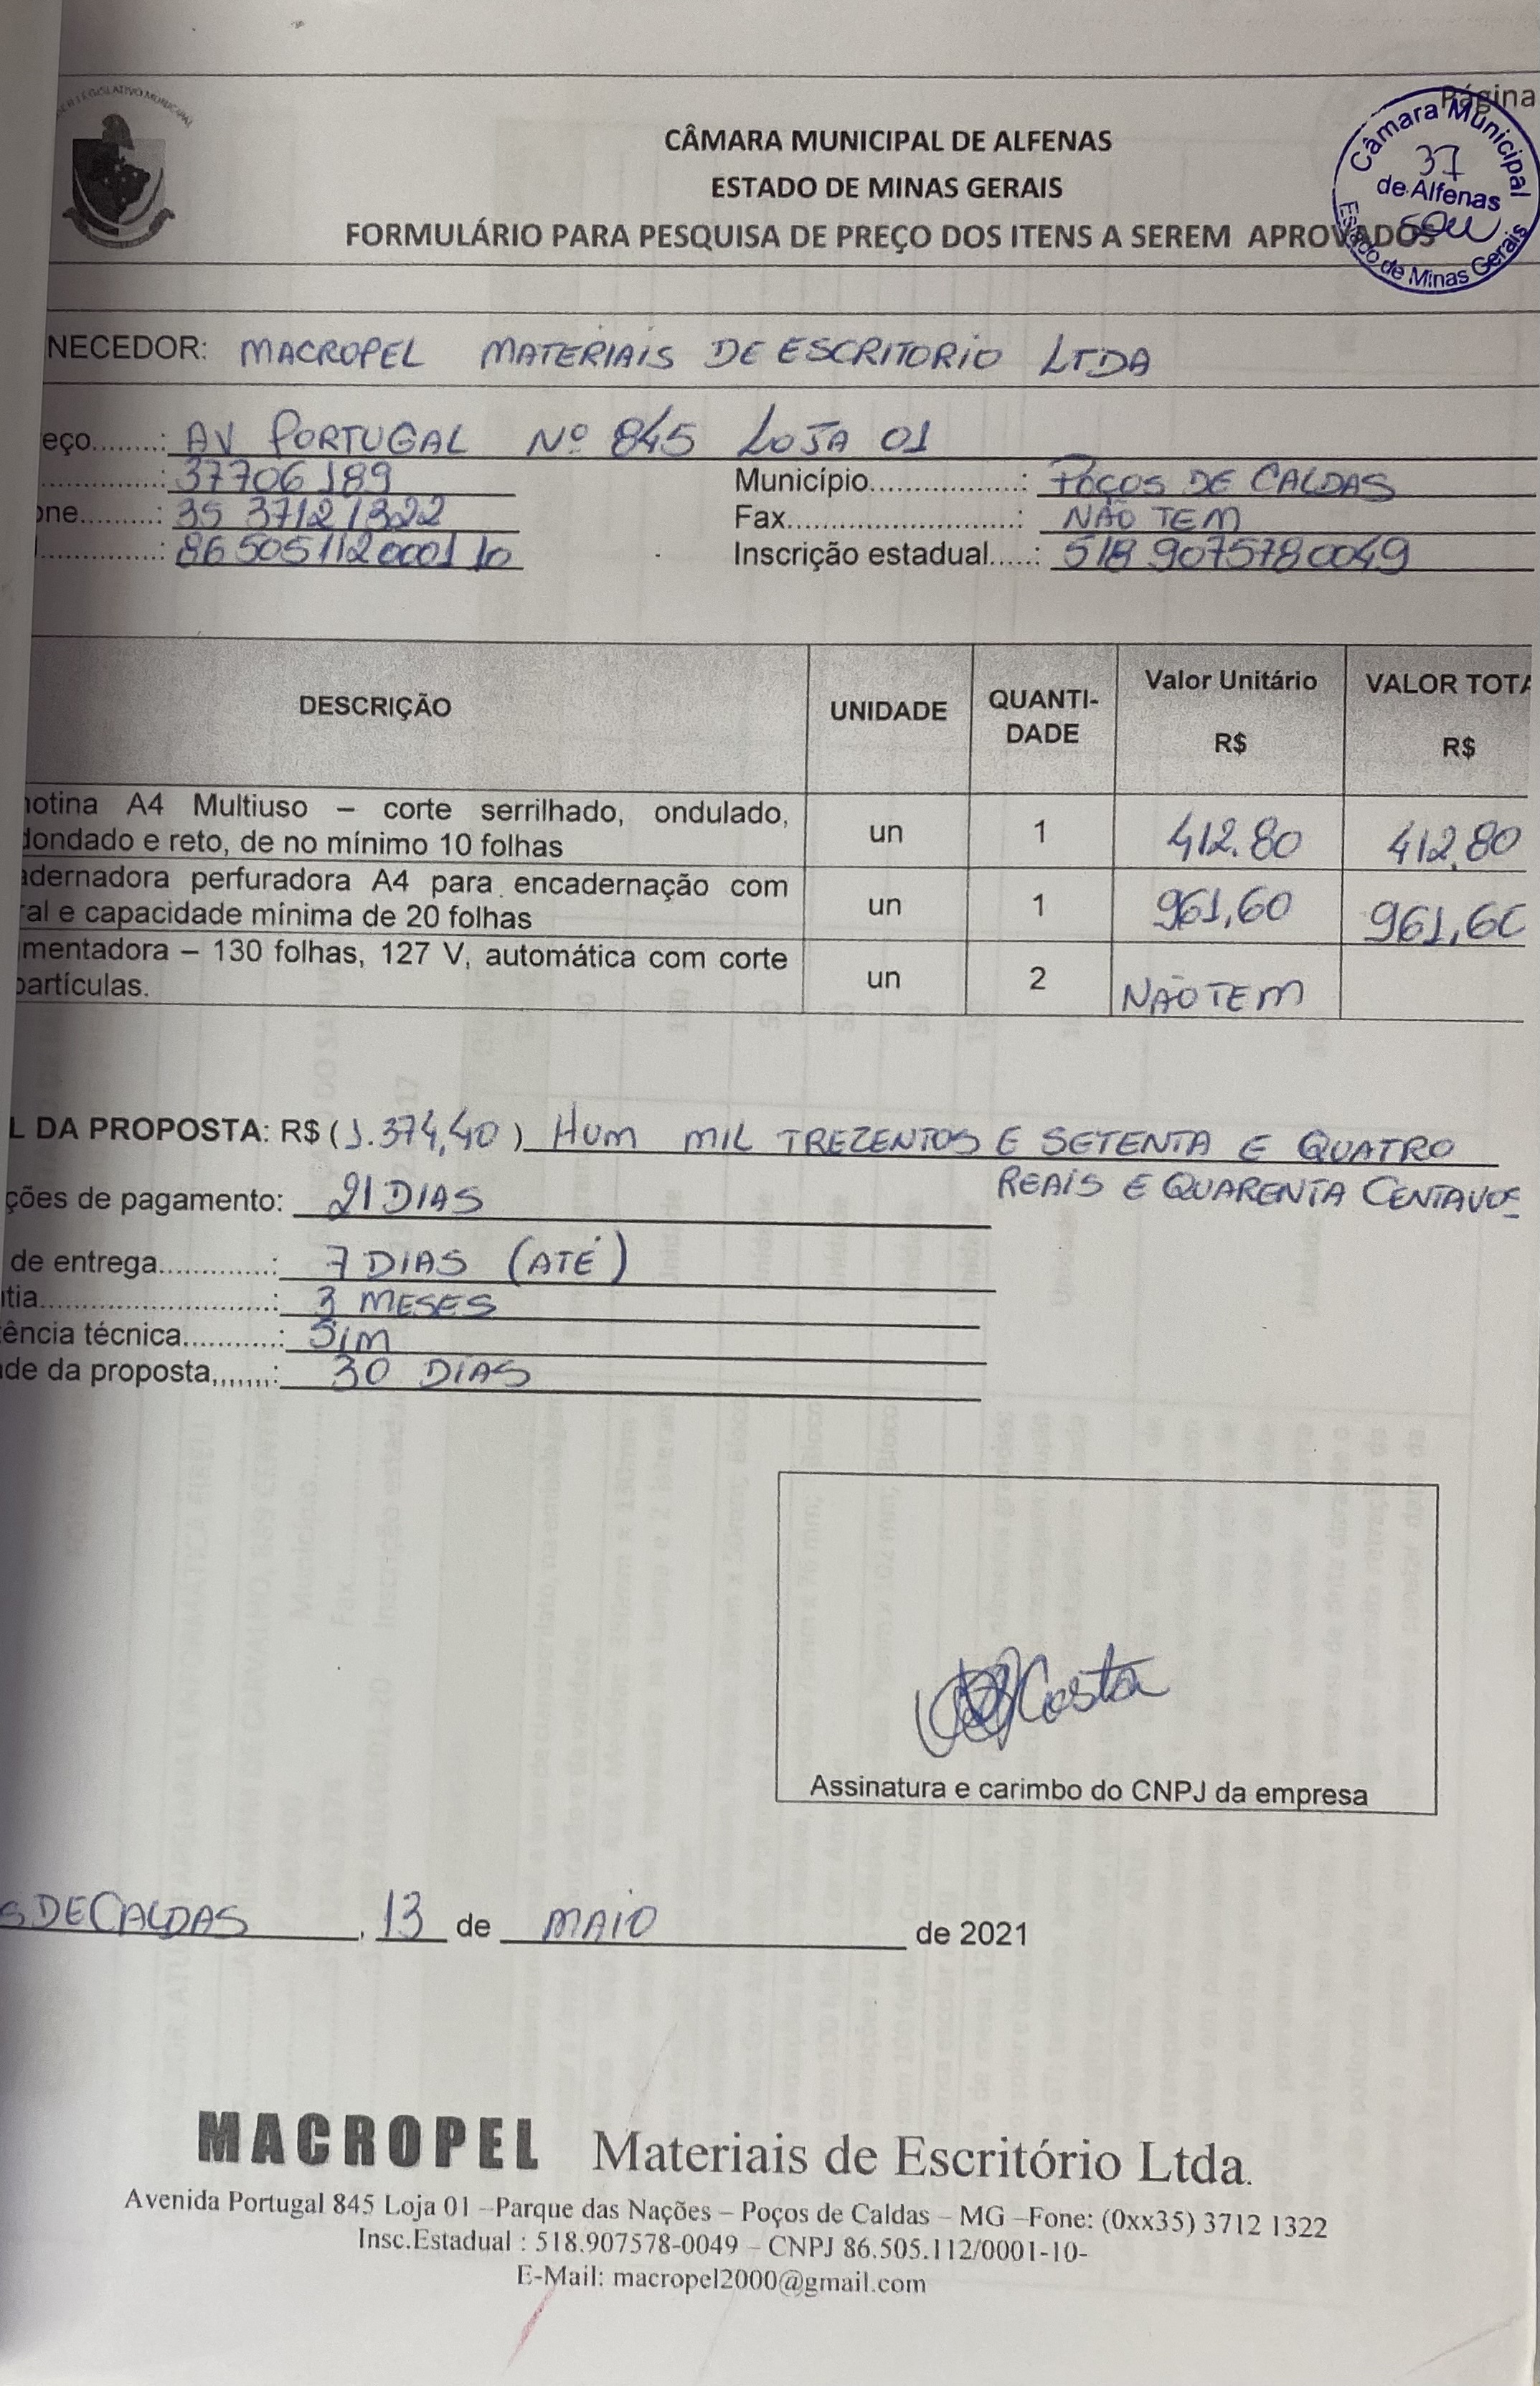 PODER LEGISLATIVO MUNICIPAL
Página
CÂMARA MUNICIPAL DE ALFENAS
ESTADO DE MINAS GERAIS
FORMULÁRIO PARA PESQUISA DE PREÇO DOS ITENS A SEREM APROVADOS
Câmara Municipal
37
de Alfenas
Estado de Minas Gerais
NECEDOR: MACROPEL MATERIAIS DE ESCRITORIO LTDA
eço........: AV PORTUGAL Nº 845 LOJA 01
............: 37706189 Município..................: POÇOS DE CALDAS
one.........: 35 3712 1322 Fax...........................: NÃO TEM
............: 86 505 112 0001 10 Inscrição estadual......: 518 9075780049
DESCRIÇÃO UNIDADE QUANTI-DADE Valor Unitário R$ VALOR TOTA R$
notina A4 Multiuso – corte serrilhado, ondulado,
dondado e reto, de no mínimo 10 folhas un 1 412.80 412,80
adernadora perfuradora A4 para encadernação com
ral e capacidade mínima de 20 folhas un 1 961,60 961,60
mentadora – 130 folhas, 127 V, automática com corte
partículas. un 2 NÃO TEM
L DA PROPOSTA: R$ (1.374,40) HUM MIL TREZENTOS E SETENTA E QUATRO
REAIS E QUARENTA CENTAVOS
ções de pagamento: 21 DIAS
de entrega.............: 7 DIAS (ATÉ)
ntia..........................: 3 MESES
tência técnica...........: SIM
ade da proposta,,,,,,,: 30 DIAS
Costa
Assinatura e carimbo do CNPJ da empresa
S DE CALDAS, 13 de MAIO de 2021
MACROPEL Materiais de Escritório Ltda.
Avenida Portugal 845 Loja 01 –Parque das Nações – Poços de Caldas – MG –Fone: (0xx35) 3712 1322
Insc.Estadual : 518.907578-0049 – CNPJ 86.505.112/0001-10-
E-Mail: macropel2000@gmail.com